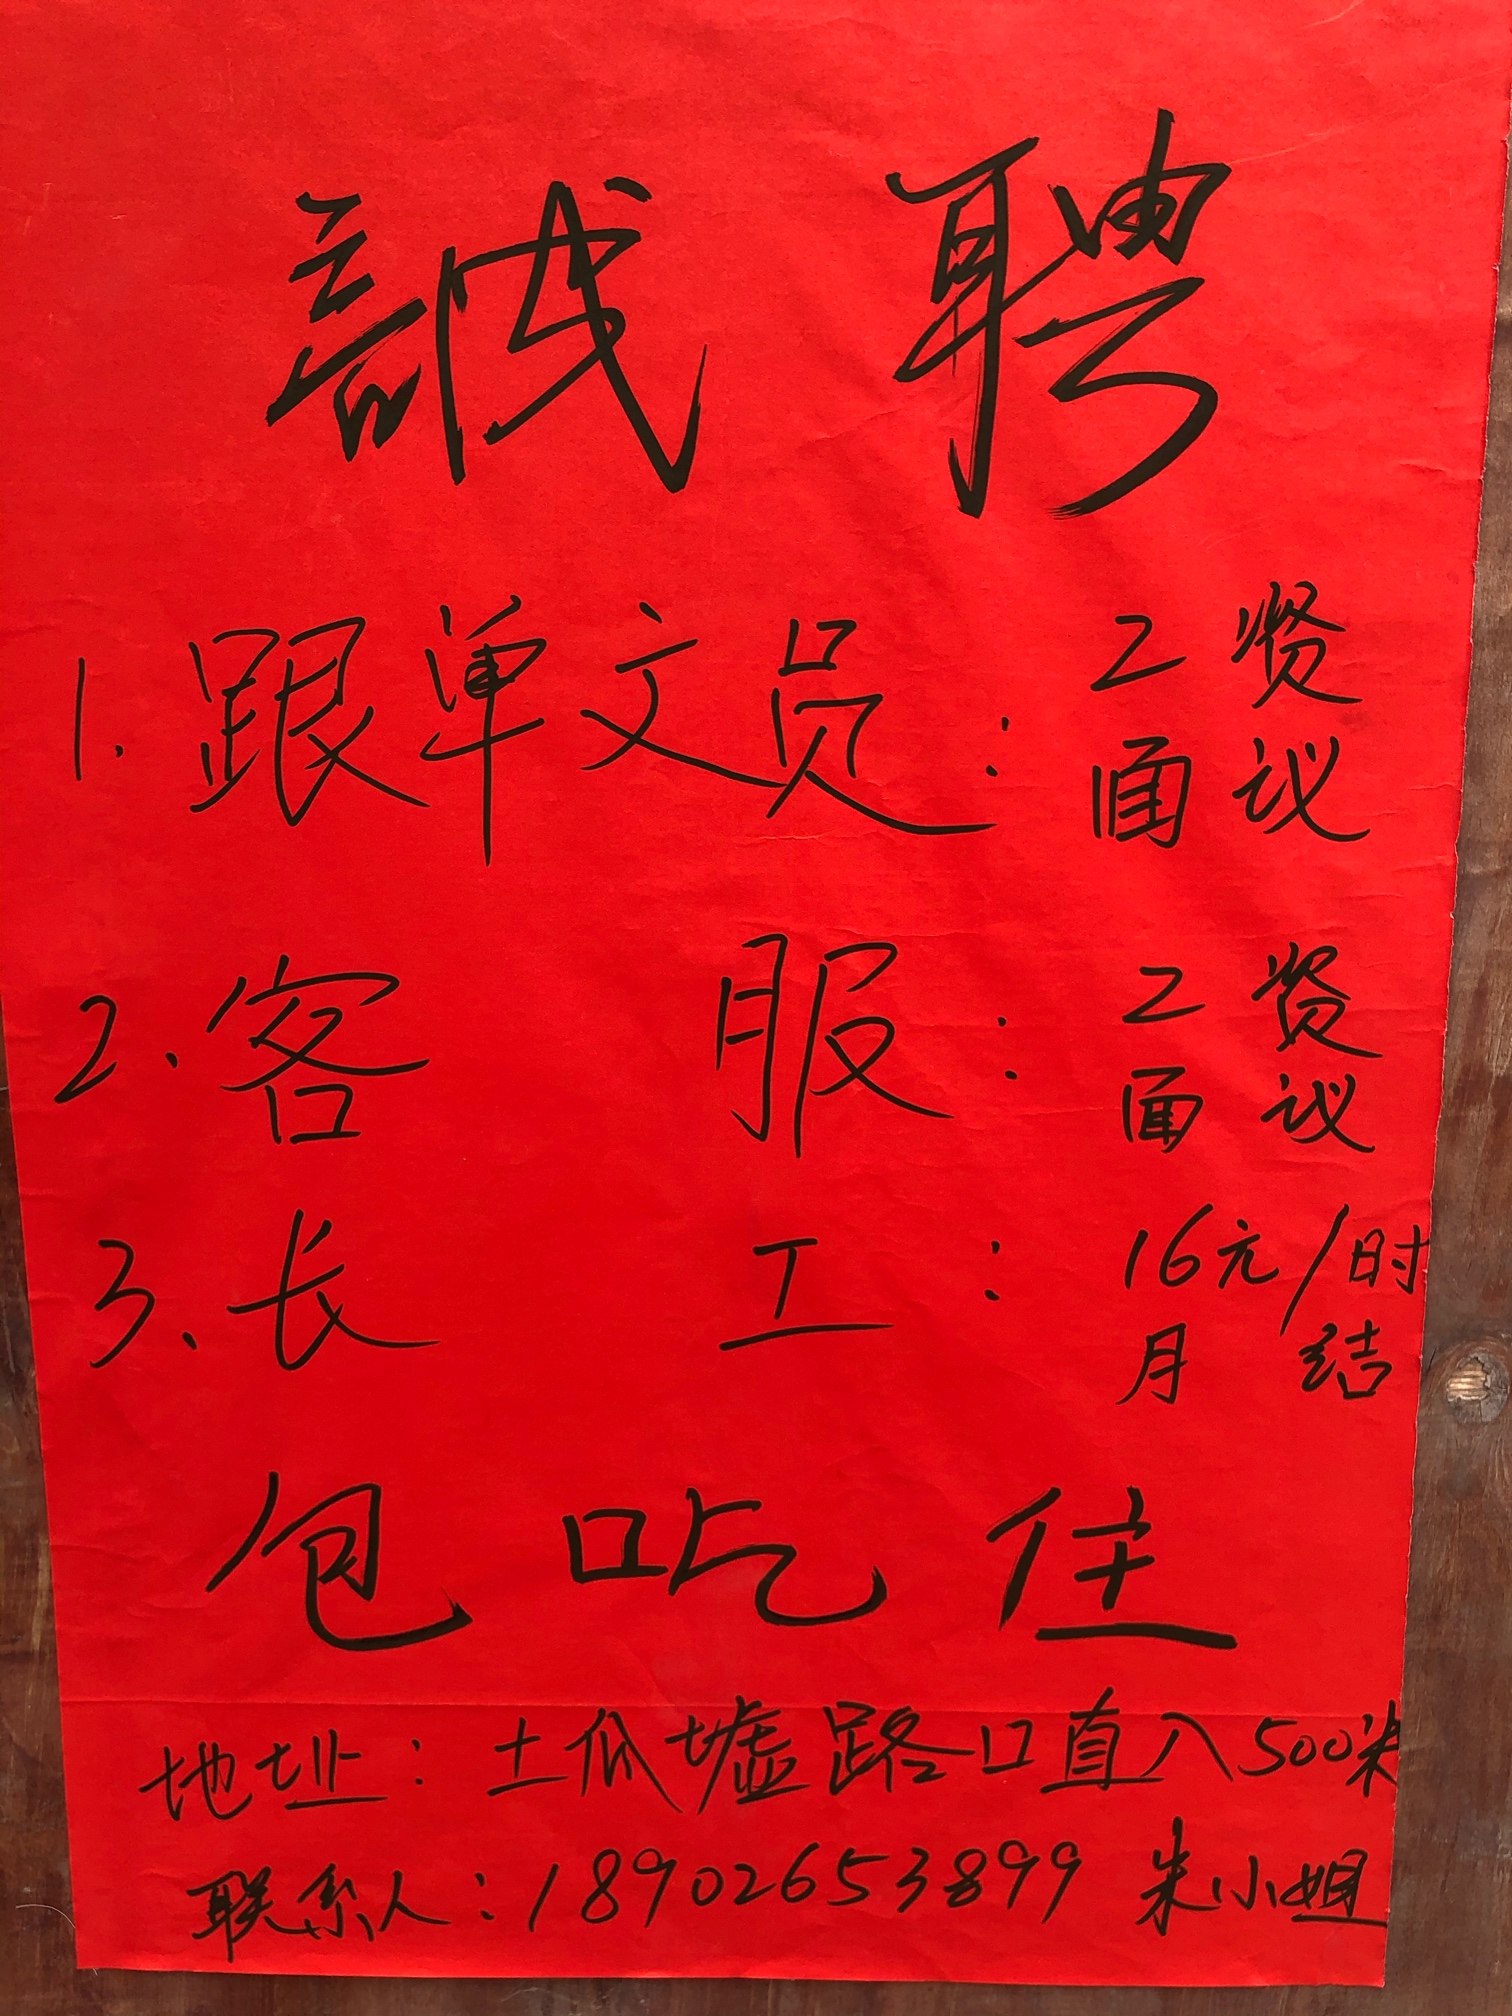 誠聘
1.跟单文员：工资
面议
2.客服：工资
面议
3.长工：16元/时
月结
包吃住
地址：土瓜墟路口直入500米
联系人：18902653899 朱小姐